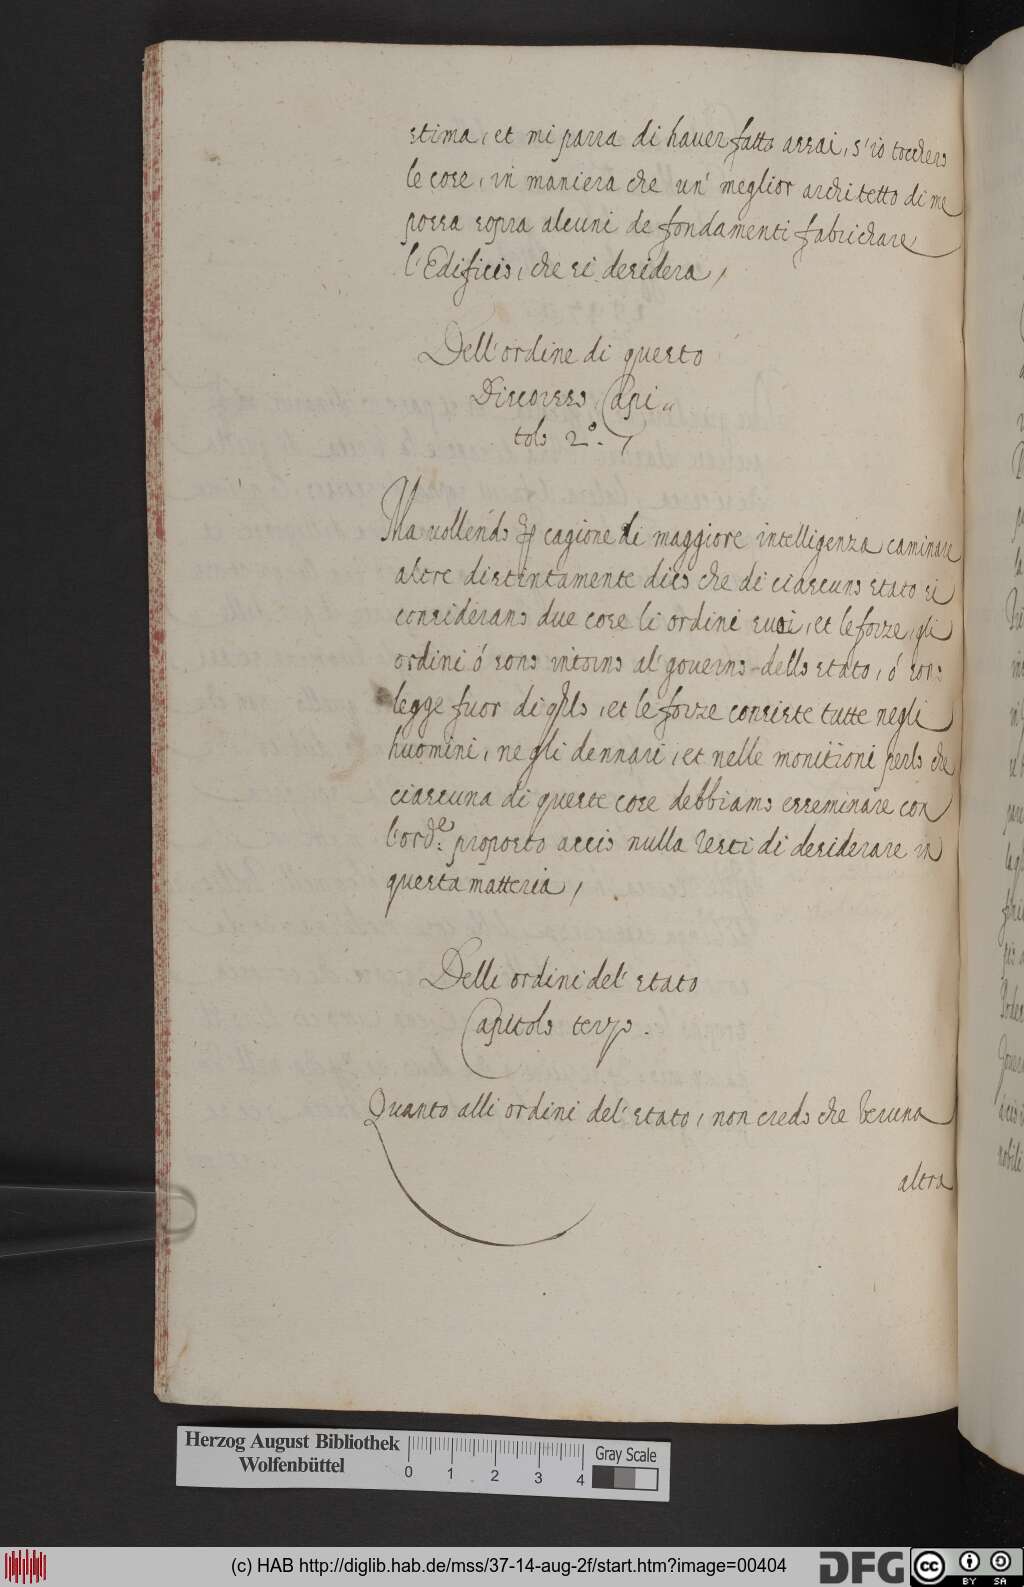 stima, et mi parra di haver fatto assai, s'io toccherò
le cose, in maniera che un' meglior architetto di me
possa sopra alcuni de fondamenti fabrichare
l'Edificio, che si desidera,
Dell'ordine di questo
Discorso, Capi„
tolo 2º.,
Ma vollendo per cagione di maggiore intelligenza caminare
altre distintamente dico che di ciascuno stato si
considerano due cose li ordini suoi, et le forze, gli
ordini ó sono intorno al' governo dello stato, ó sono
legge fuor di qllo, et le forze consiste tutte negli
huomini, negli dennari, et nelle monitioni perlo che
ciascuna di queste cose debbiamo esseminare con
l'ord.e proposto accio nulla resti di desiderare in
questa matteria,
Delli ordini del' stato
Capitolo terzo.
Quanto alli ordini del' stato, non credo che veruna
altra
Herzog August Bibliothek
Wolfenbüttel
0 1 2 3 4
Gray Scale
(c) HAB http://diglib.hab.de/mss/37-14-aug-2f/start.htm?image=00404
DFG
cc BY SA